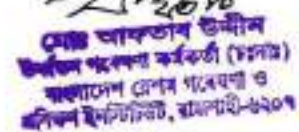 মোঃ আফতাব উদ্দীন
ঊর্ধ্বতন গবেষণা কর্মকর্তা (চঃদাঃ)
বাংলাদেশ রেশম গবেষণা ও
প্রশিক্ষণ ইনস্টিটিউট, রাজশাহী-৬২০৭